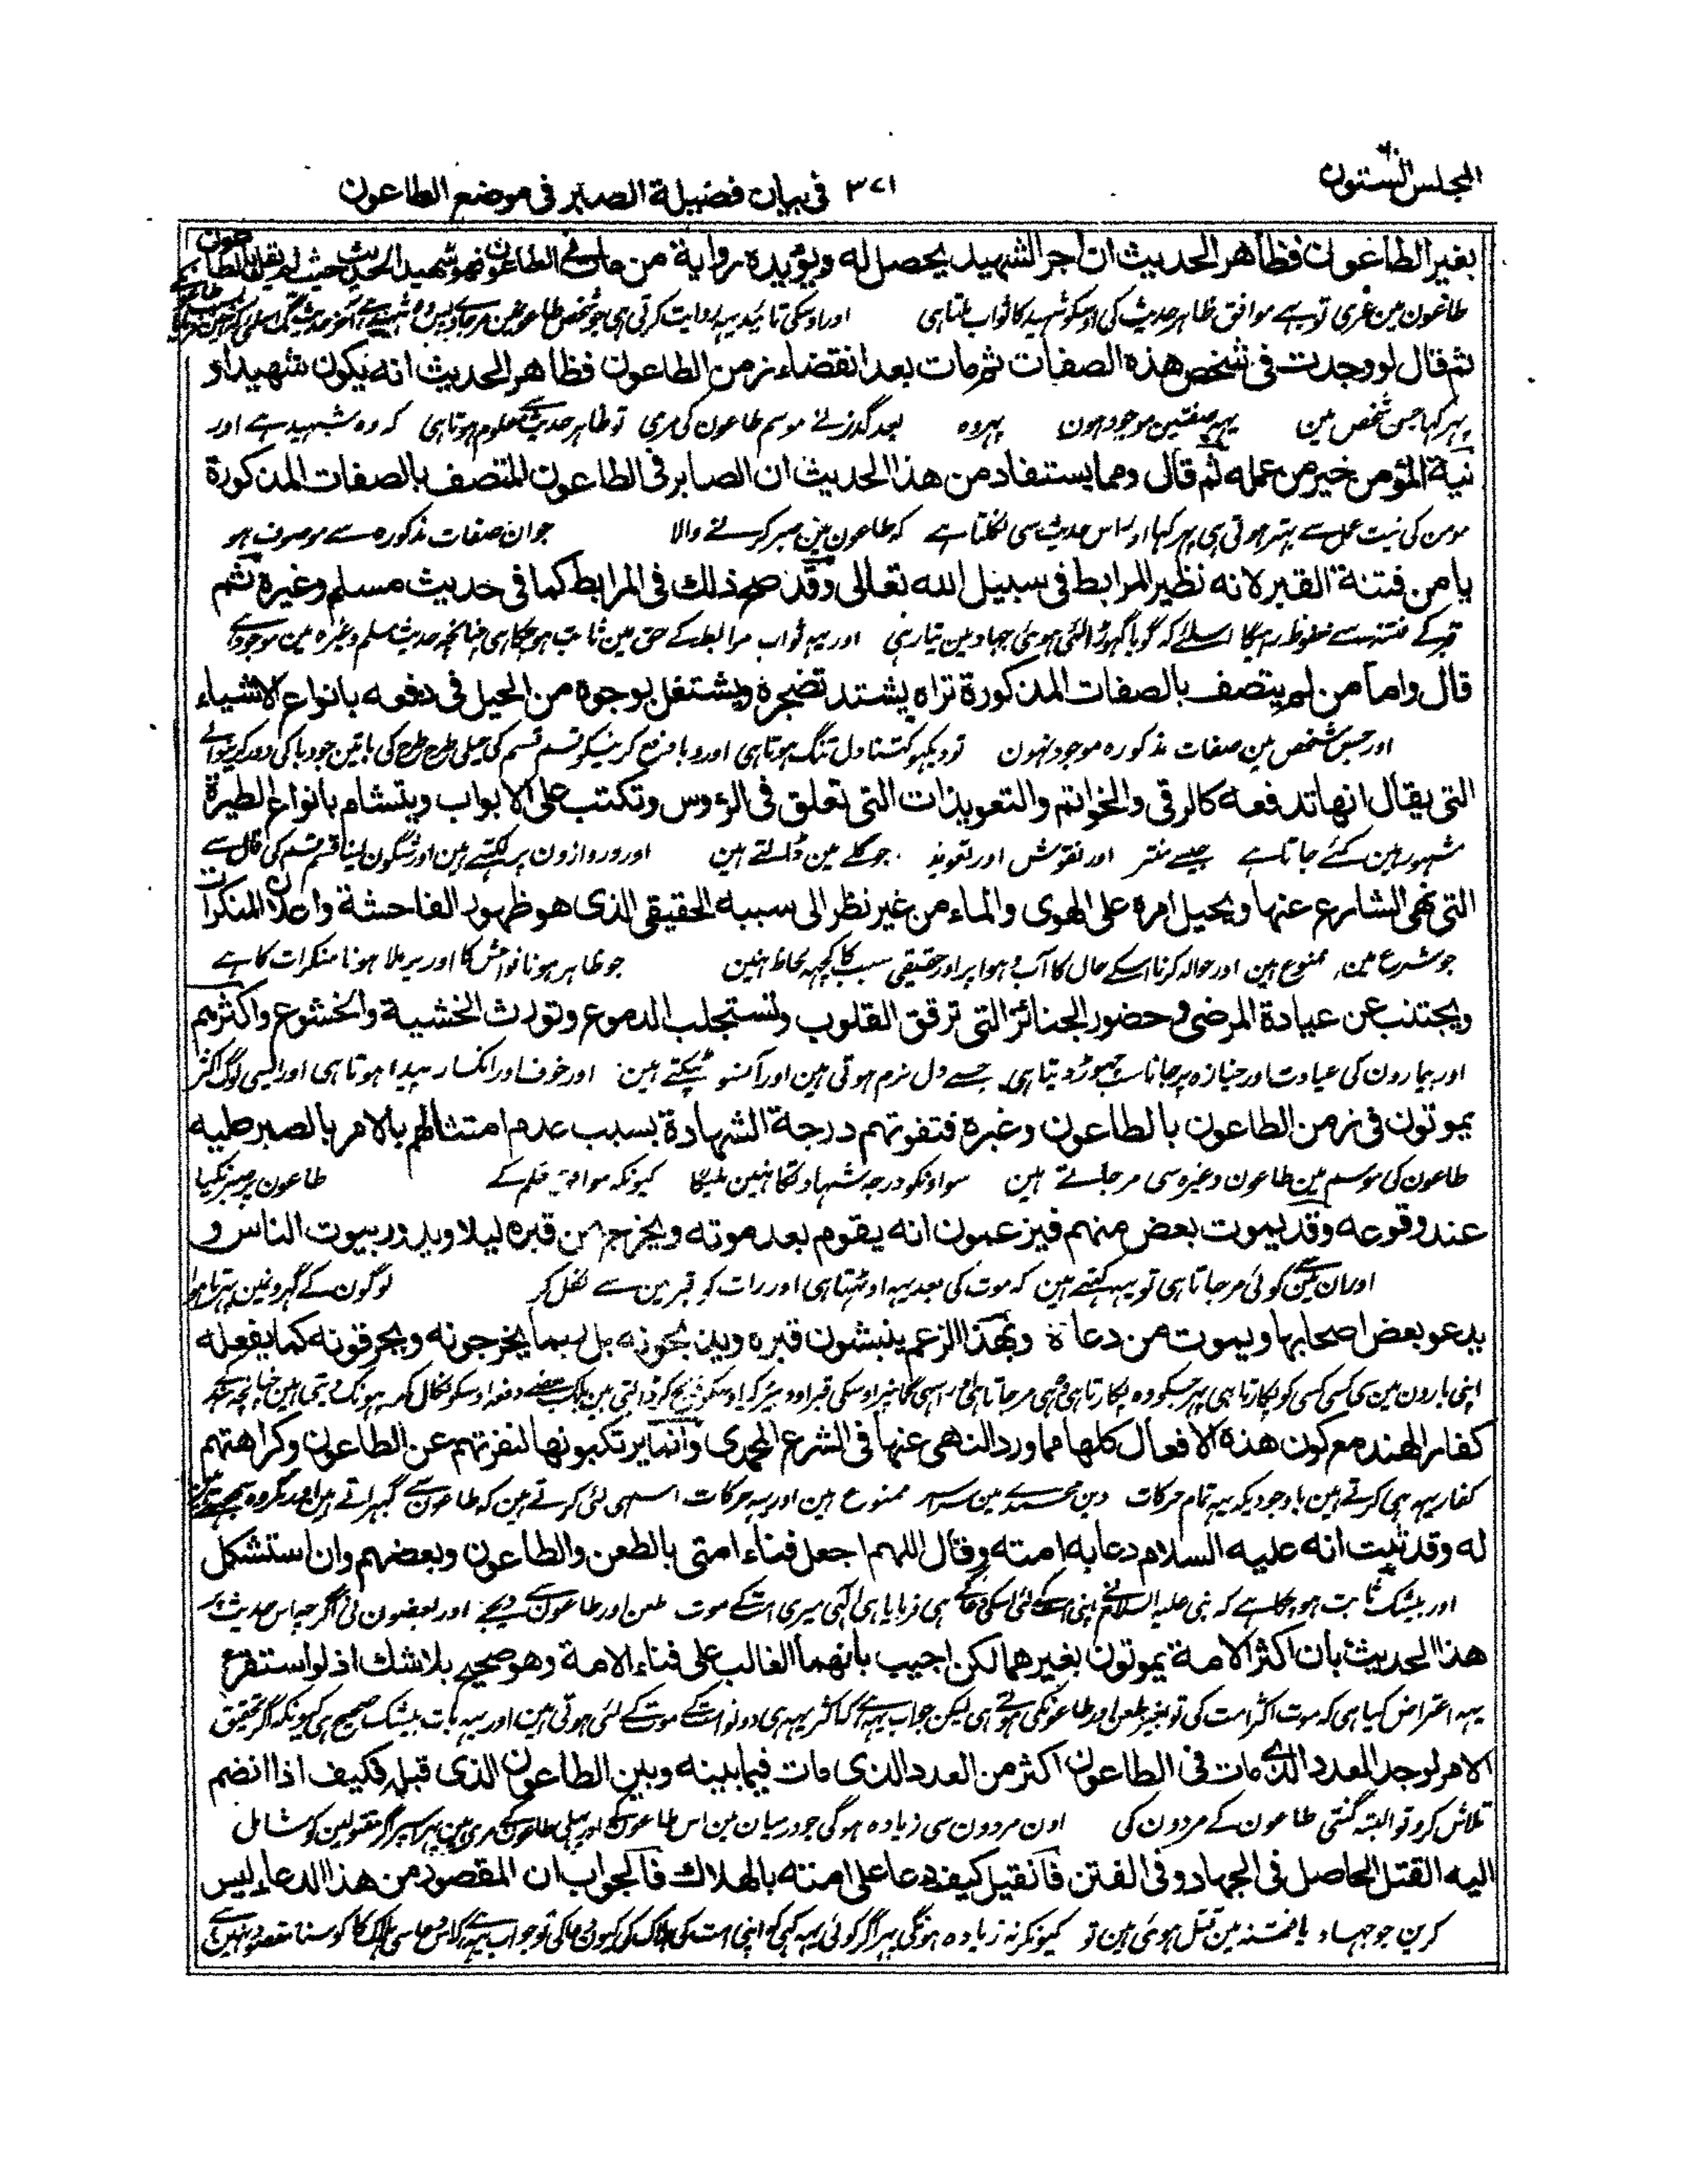 المجلس الستون
٣٧١ فى بيان فضيلة الصبر فى موضع الطاعون
بغير الطاعون فظاهر الحديث ان اجر الشهيد يحصل له ويؤيده رواية من مات فى الطاعون فهو شهيد الحديث حيث لم يقل بالطاعون
طاعون مین مری تو ہے موافق ظاہر حدیث کی اوسکو شہید کا ثواب ملتا ہی اور اوسکی تائید یہہ روایت کرتی ہی جو شخص طاعون مین مر جاوے پس وہ شہید ہے
ثم قال لو وجدت فى شخص هذه الصفات ثم مات بعد انقضاء زمن الطاعون فظاهر الحديث انه يكون شهيدا و
پہر کہا جس شخص مین یہہ صفتین موجود ہون پہر وہ بعد گذرنے موسم طاعون کی مری تو ظاہر حدیث سے معلوم ہوتا ہی کہ وہ شہید ہے اور
نية المؤمن خير من عمله ثم قال ومما يستفاد من هذا الحديث ان الصابر فى الطاعون المتصف بالصفات المذكورة
مومن کی نیت عمل سے بہتر ہوتی ہی پہر کہا اور اس حدیث سی نکلتا ہے کہ طاعون مین صبر کرنے والا جو ان صفات مذکورہ سے موصوف ہو
يامن فتنة القبر لانه نظير المرابط فى سبيل الله تعالى وقد صح ذلك فى المرابط كما فى حديث مسلم وغيره ثم
قبر کے فتنہ سے محفوظ رہیگا اسلئے کہ گویا گہوڑا لئی ہوئی جہاد مین تیار ہی اور یہہ ثواب مرابط کے حق مین ثابت ہو چکا ہی چنانچہ حدیث مسلم وغیرہ مین موجود ہے
قال واما من لم يتصف بالصفات المذكورة تراه يشتد تضجره ويشتغل بوجوه من الحيل فى دفعه بانواع الاشياء
اور جس شخص مین صفات مذکورہ موجود نہون تو دیکہو کتنا دل تنگ ہوتا ہی اور وبا دفع کرنیکو قسم قسم کی حیلی طرح طرح کی باتین جو وبا کی دور کرنیوالے
التى يقال انها تدفعه كالرقى والخواتم والتعويذات التى تعلق فى الرؤس وتكتب على الابواب ويتشام بانواع الطيرة
مشہور ہین کئے جاتا ہے جیسے منتر اور نقوش اور تعویذ جو گلے مین ڈالتے ہین اور دروازون پر لکہتے ہین اور شگون لینا قسم قسم کی فال سے
التى نهى الشارع عنها ويحيل امره على الهوى والماء من غير نظر الى سببه الحقيقى الذى هو ظهور الفاحشة واعلان المنكرات
جو شرع مین ممنوع ہین اور حوالہ کرنا اسکے حال کا آب و ہوا پر اور حقیقی سبب کا کچہہ لحاظ نہین جو ظاہر ہونا فواحش کا اور برملا ہونا منکرات کا ہے
ويجتنب عن عيادة المرضى وحضور الجنائز التى ترقق القلوب وتستجلب الدموع وتورث الخشية والخشوع واكثرهم
اور بیمارون کی عیادت اور جنازہ پر جانا سب چہوڑ دیتا ہی جسے دل نرم ہوتی ہین اور آنسو ٹپکتے ہین اور خوف اور انکسار پیدا ہوتا ہی اور ایسی لوگ اکثر
يموتون فى زمن الطاعون بالطاعون وغيره فتفوتهم درجة الشهادة بسبب عدم امتثالهم بالامر بالصبر عليه
طاعون کی موسم مین طاعون وغیرہ سی مر جاتے ہین سو اونکو درجہ شہادت کا نہین ملیگا کیونکہ موافق حکم کے طاعون پر صبر نکیا
عند وقوعه وقد يموت بعض منهم فيزعمون انه يقوم بعد موته ويخرج من قبره ليلا ويدور بيوت الناس و
اور ان مین سے کوئی مر جاتا ہی تو یہہ کہتے ہین کہ موت کی بعد یہہ اوٹہتا ہی اور رات کو قبر مین سے نکل کر لوگون کے گہرونمین پہرتا ہوا
يدعو بعض اصحابها ويموت من دعاه وبهذا الزعم ينبشون قبره ويذبحونه بل ربما يخرجونه ويحرقونه كما يفعله
كفار الهند مع كون هذه الافعال كلها مما ورد النهى عنها فى الشرع المحمدى وانما يرتكبونها لنفرتهم عن الطاعون وكراهتهم
کفار یہہ ہی کرتے ہین باوجودیکہ یہہ تمام حرکات دین محمدی مین سراسر ممنوع ہین اور یہہ حرکات اسہی لئی کرتے ہین کہ طاعون سے گہبراتے ہین
له وقد ثبت انه عليه السلام دعا به امته وقال اللهم اجعل فناء امتى بالطعن والطاعون وبعضهم وان استشكل
اور بیشک ثابت ہو چکا ہے کہ نبی علیہ السلام نے اپنی امت کے لئی اسکی دعا کے ہی فرمایا ہی آلہی میری امت کے موت طعن اور طاعون سے کیجے اور بعضون نی اگرچہ اس حدیث پر
هذا الحديث بان اكثر الامة يموتون بغيرهما لكن اجيب بانهما الغالب على فناء الامة وهو صحيح بلا شك اذ لو استقرئ
یہہ اعتراض کیا ہی کہ موت اکثر امت کی تو بغیر طعن اور طاعونکی ہوتے ہی لیکن جواب یہہ ہے کہ اکثر یہہ ہی دونو امت کے موت کے لئی ہوتی ہین اور یہہ بات بیشک صحیح ہی کیونکہ اگر تحقیق
الامر لوجد العدد الذى مات فى الطاعون اكثر من العدد الذى مات فيما بينه وبين الطاعون الذى قبله فكيف اذا انضم
تلاش کرو تو البتہ گنتی طاعون کے مردون کی اون مردون سی زیادہ ہوگی جو درمیان مین اس طاعون کے اور پہلی طاعون کے مری ہین پہر اگر مقتولین کو شامل
اليه القتل الحاصل فى الجهاد وفى الفتن فان قيل كيف دعا على امته بالهلاك فالجواب ان المقصود من هذا الدعاء ليس
کرین جو جہاد یا فتنہ مین قتل ہوئی ہین تو کیونکر نہ زیادہ ہونگی پہر اگر کوئی یہہ کہی کہ اپنی امت کی ہلاک کی کیون دعا کی تو جواب یہہ ہے کہ اس دعا سی ہلاک کا کوسنا مقصود نہین ہے